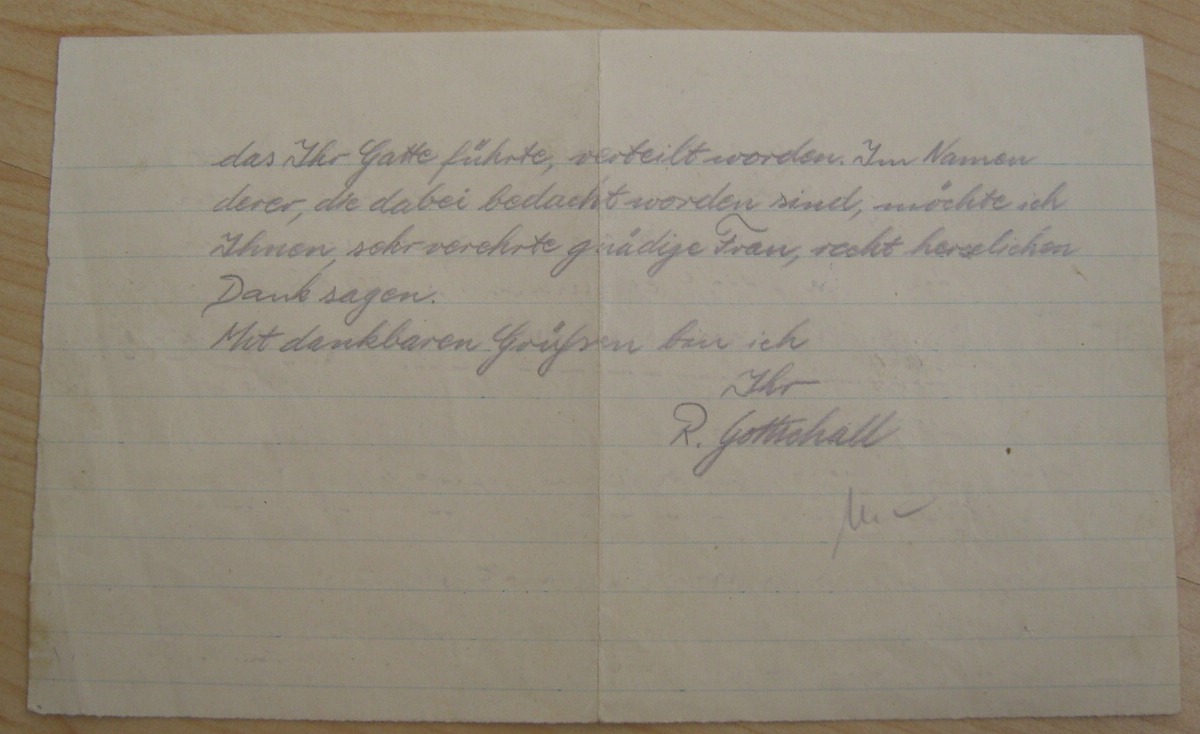 das Ihr Gatte führte, verteilt worden. Im Namen
derer, die dabei bedacht worden sind, möchte ich
Ihnen, sehr verehrte gnädige Frau, recht herzlichen
Dank sagen.
Mit dankbaren Grüßen bin ich
Ihr
R. Gottschall